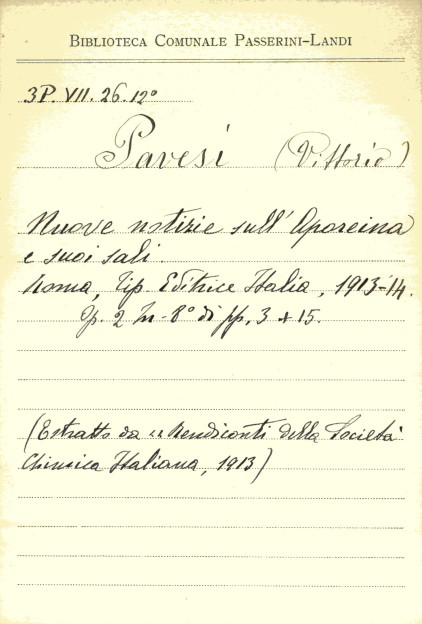 BIBLIOTECA COMUNALE PASSERINI-LANDI
3P. VII. 26. 12º
Pavesi (Vittorio)
Nuove notizie sull'Aporeina
e suoi sali.
Roma, Tip. Editrice Italia, 1913-14.
Op. 2 In-8º di pp. 3 + 15.
(Estratto da "Rendiconti della Società
Chimica Italiana, 1913)